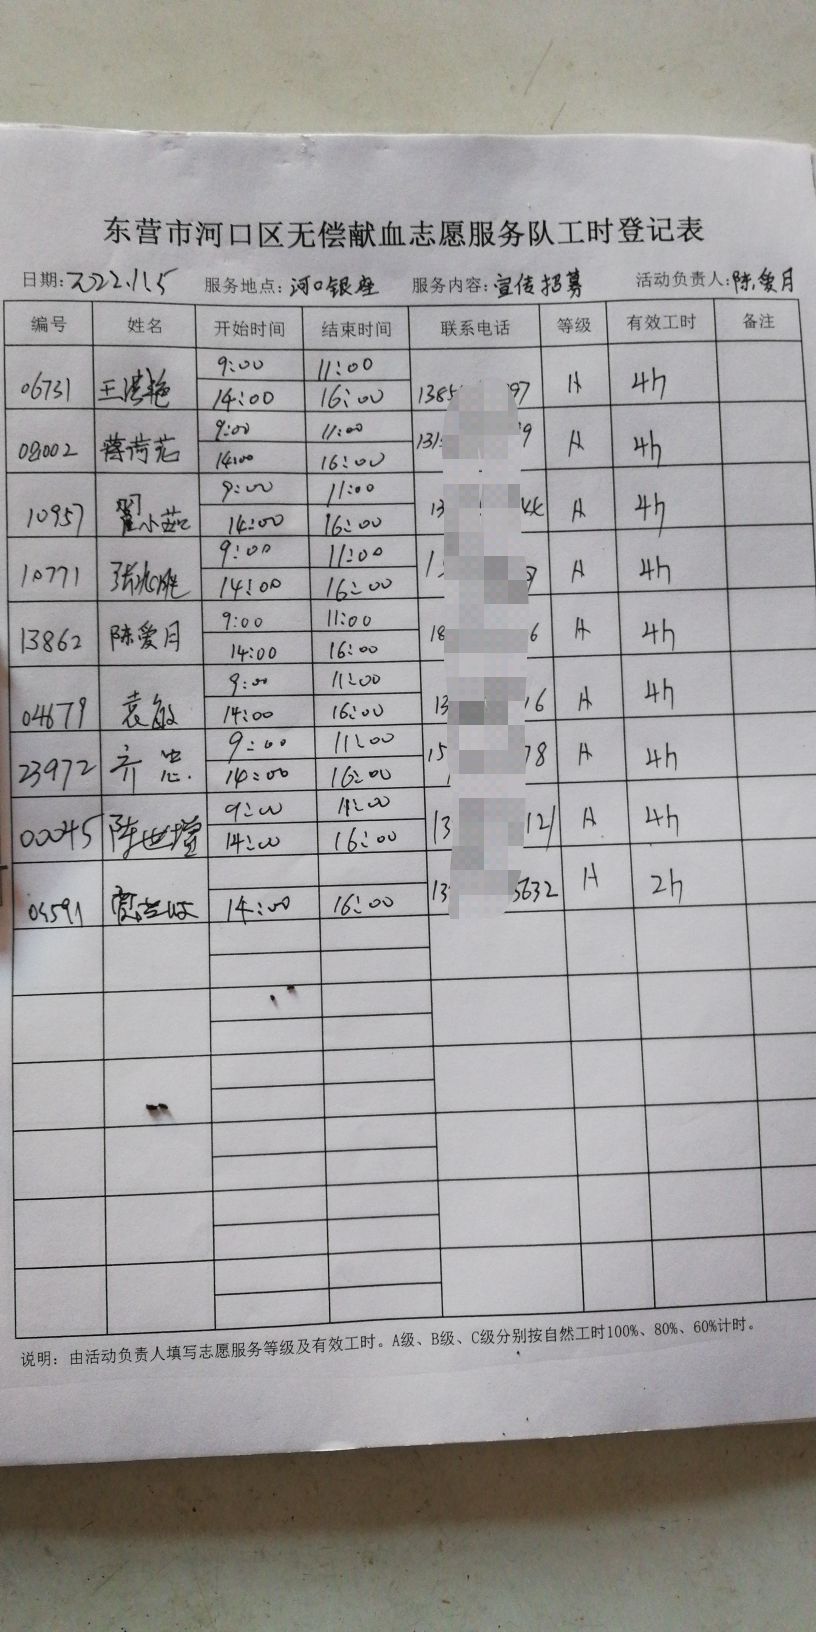 东营市河口区无偿献血志愿服务队工时登记表
日期: 2022.11.5 服务地点: 河口银座 服务内容: 宣传招募 活动负责人: 陈爱月
编号 姓名 开始时间 结束时间 联系电话 等级 有效工时 备注
9:00 11:00
06731 王洪艳 14:00 16:00 1385 97 A 4h
9:00 11:00
08002 蒋荷花 14:00 16:00 131 9 A 4h
9:00 11:00
10957 翟小茹 14:00 16:00 13 44 A 4h
9:00 11:00
10771 14:00 16:00 1 9 A 4h
9:00 11:00
13862 陈爱月 14:00 16:00 18 6 A 4h
9:00 11:00
04679 袁敏 14:00 16:00 13 16 A 4h
9:00 11:00
23972 齐忠 14:00 16:00 15 78 A 4h
9:00 11:00
00045 陈世增 14:00 16:00 13 121 A 4h
04591 14:00 16:00 13 5632 A 2h
说明: 由活动负责人填写志愿服务等级及有效工时。A级、B级、C级分别按自然工时100%、80%、60%计时。